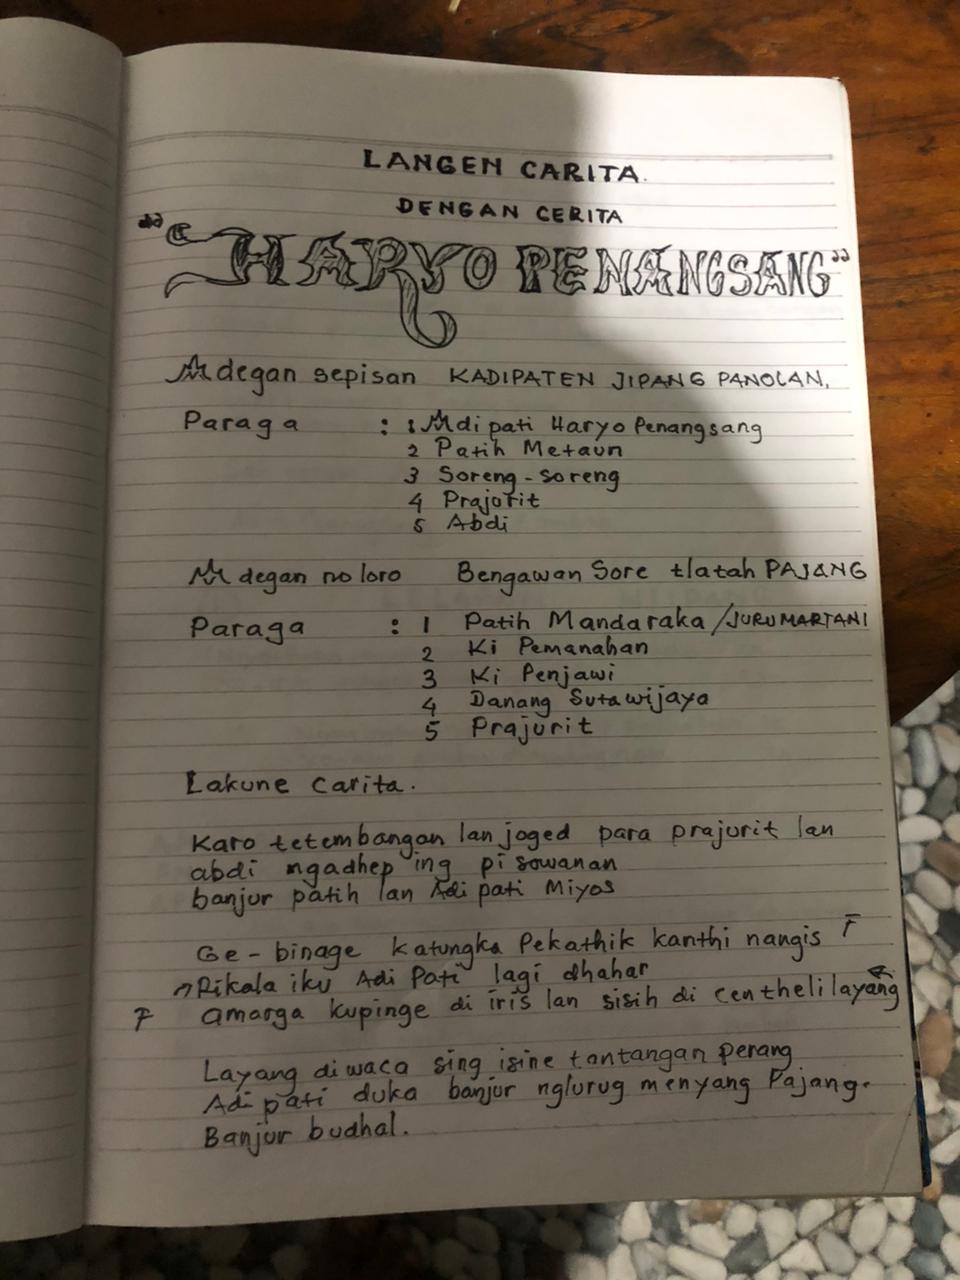 LANGEN CARITA.
DENGAN CERITA
"HARYO PENANGSANG"
Adegan sepisan KADIPATEN JIPANG PANOLAN.
Paraga : 1 Adipati Haryo Penangsang
2 Patih Metaun
3 Soreng-soreng
4 Prajurit
5 Abdi
Adegan no loro Bengawan Sore tlatah PAJANG
Paraga : 1 Patih Mandaraka / JURUMARTANI
2 Ki Pemanahan
3 Ki Penjawi
4 Danang Sutawijaya
5 Prajurit
Lakune Carita.
Karo tetembangan lan joged para prajurit lan
abdi ngadhep ing pisowanan
banjur patih lan Adipati Miyos
Ge-binage katungka Pekathik kanthi nangis F
Rikala iku Adi Pati lagi dhahar
F amarga kupinge di iris lan sisih di centheli layang
Layang diwaca sing isine tantangan perang
Adipati duka banjur nglurug menyang Pajang.
Banjur budhal.